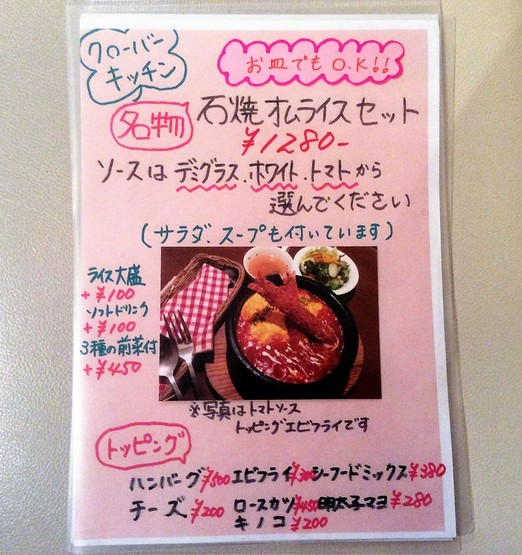 クローバー
キッチン
お皿でもO.K!!
名物 石焼オムライスセット
¥1280-
ソースはデミグラス.ホワイト.トマトから
選んでください
(サラダ、スープも付いています)
ライス大盛
+¥100
ソフトドリンク
+¥100
3種の前菜付
+¥450
※写真はトマトソース
トッピングエビフライです
トッピング
ハンバーグ¥500 エビフライ¥300 シーフードミックス¥380
チーズ¥200 ロースカツ¥450 明太子マヨ¥280
キノコ¥200